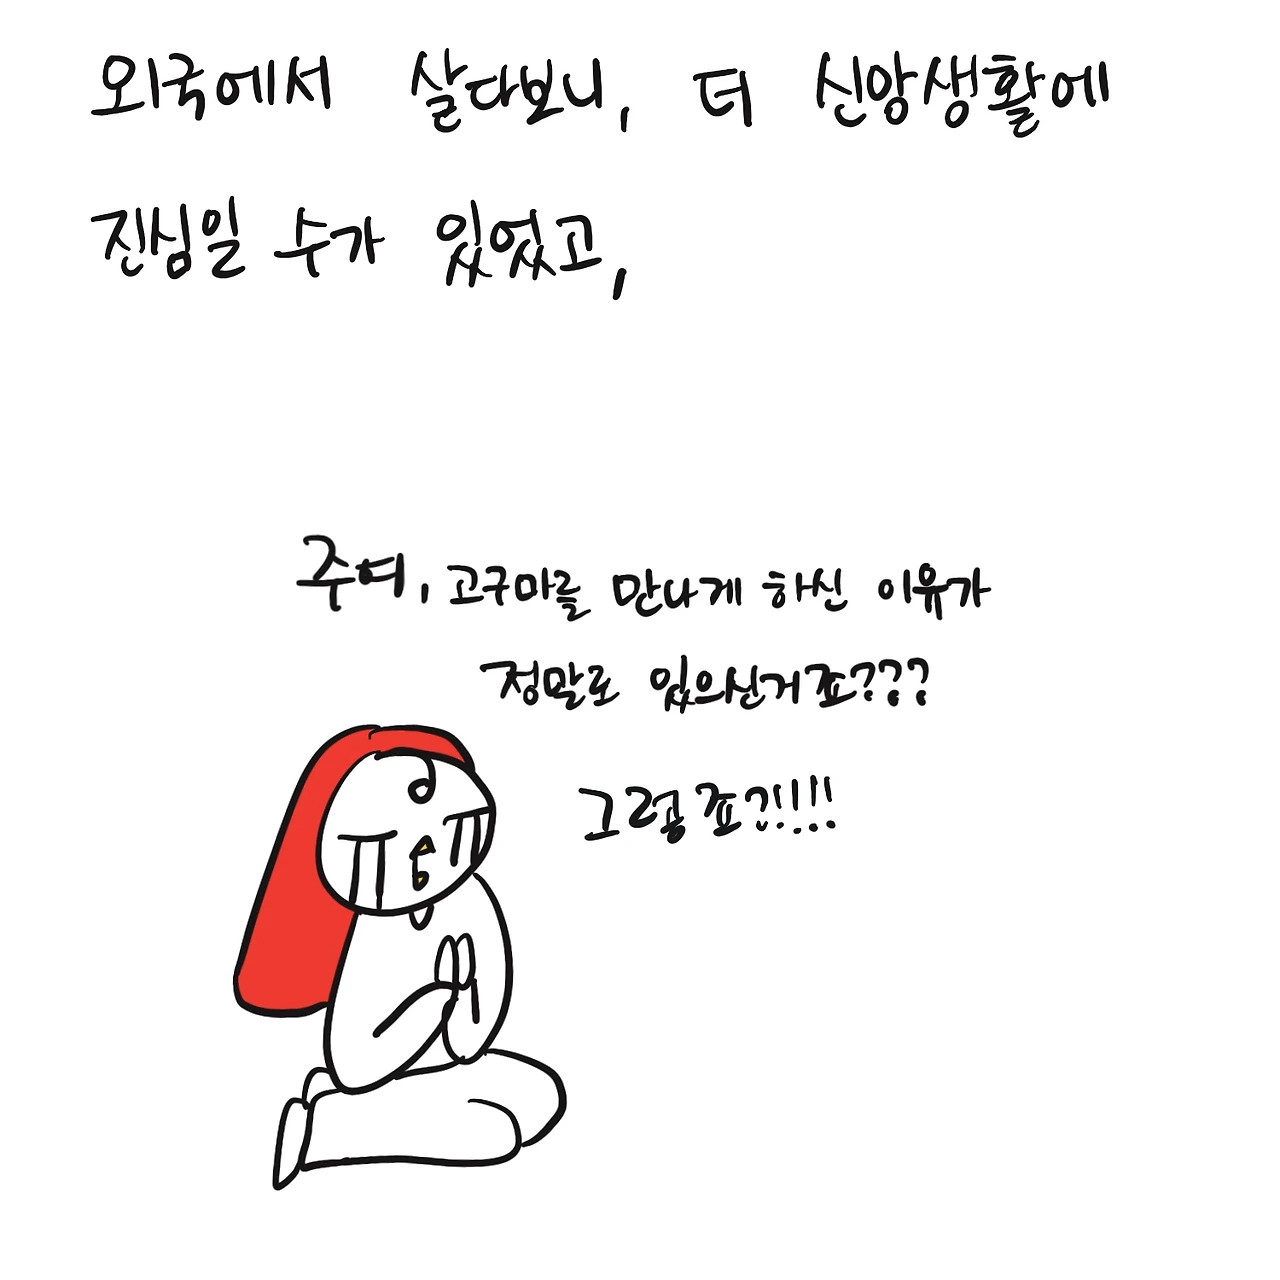 외국에서 살다보니, 더 신앙생활에
진심일 수가 있었고,
주여, 고구마를 만나게 하신 이유가
정말로 있으신거죠???
그렇죠?!!!!